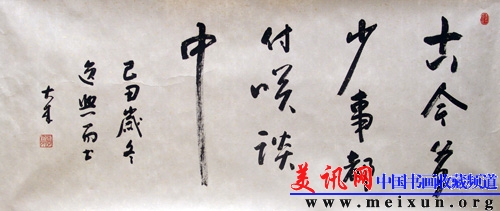 古今多
少事都
付咲谈
中
己丑歲冬
逸興而书
美讯网
中国书画收藏频道
www.meixun.org